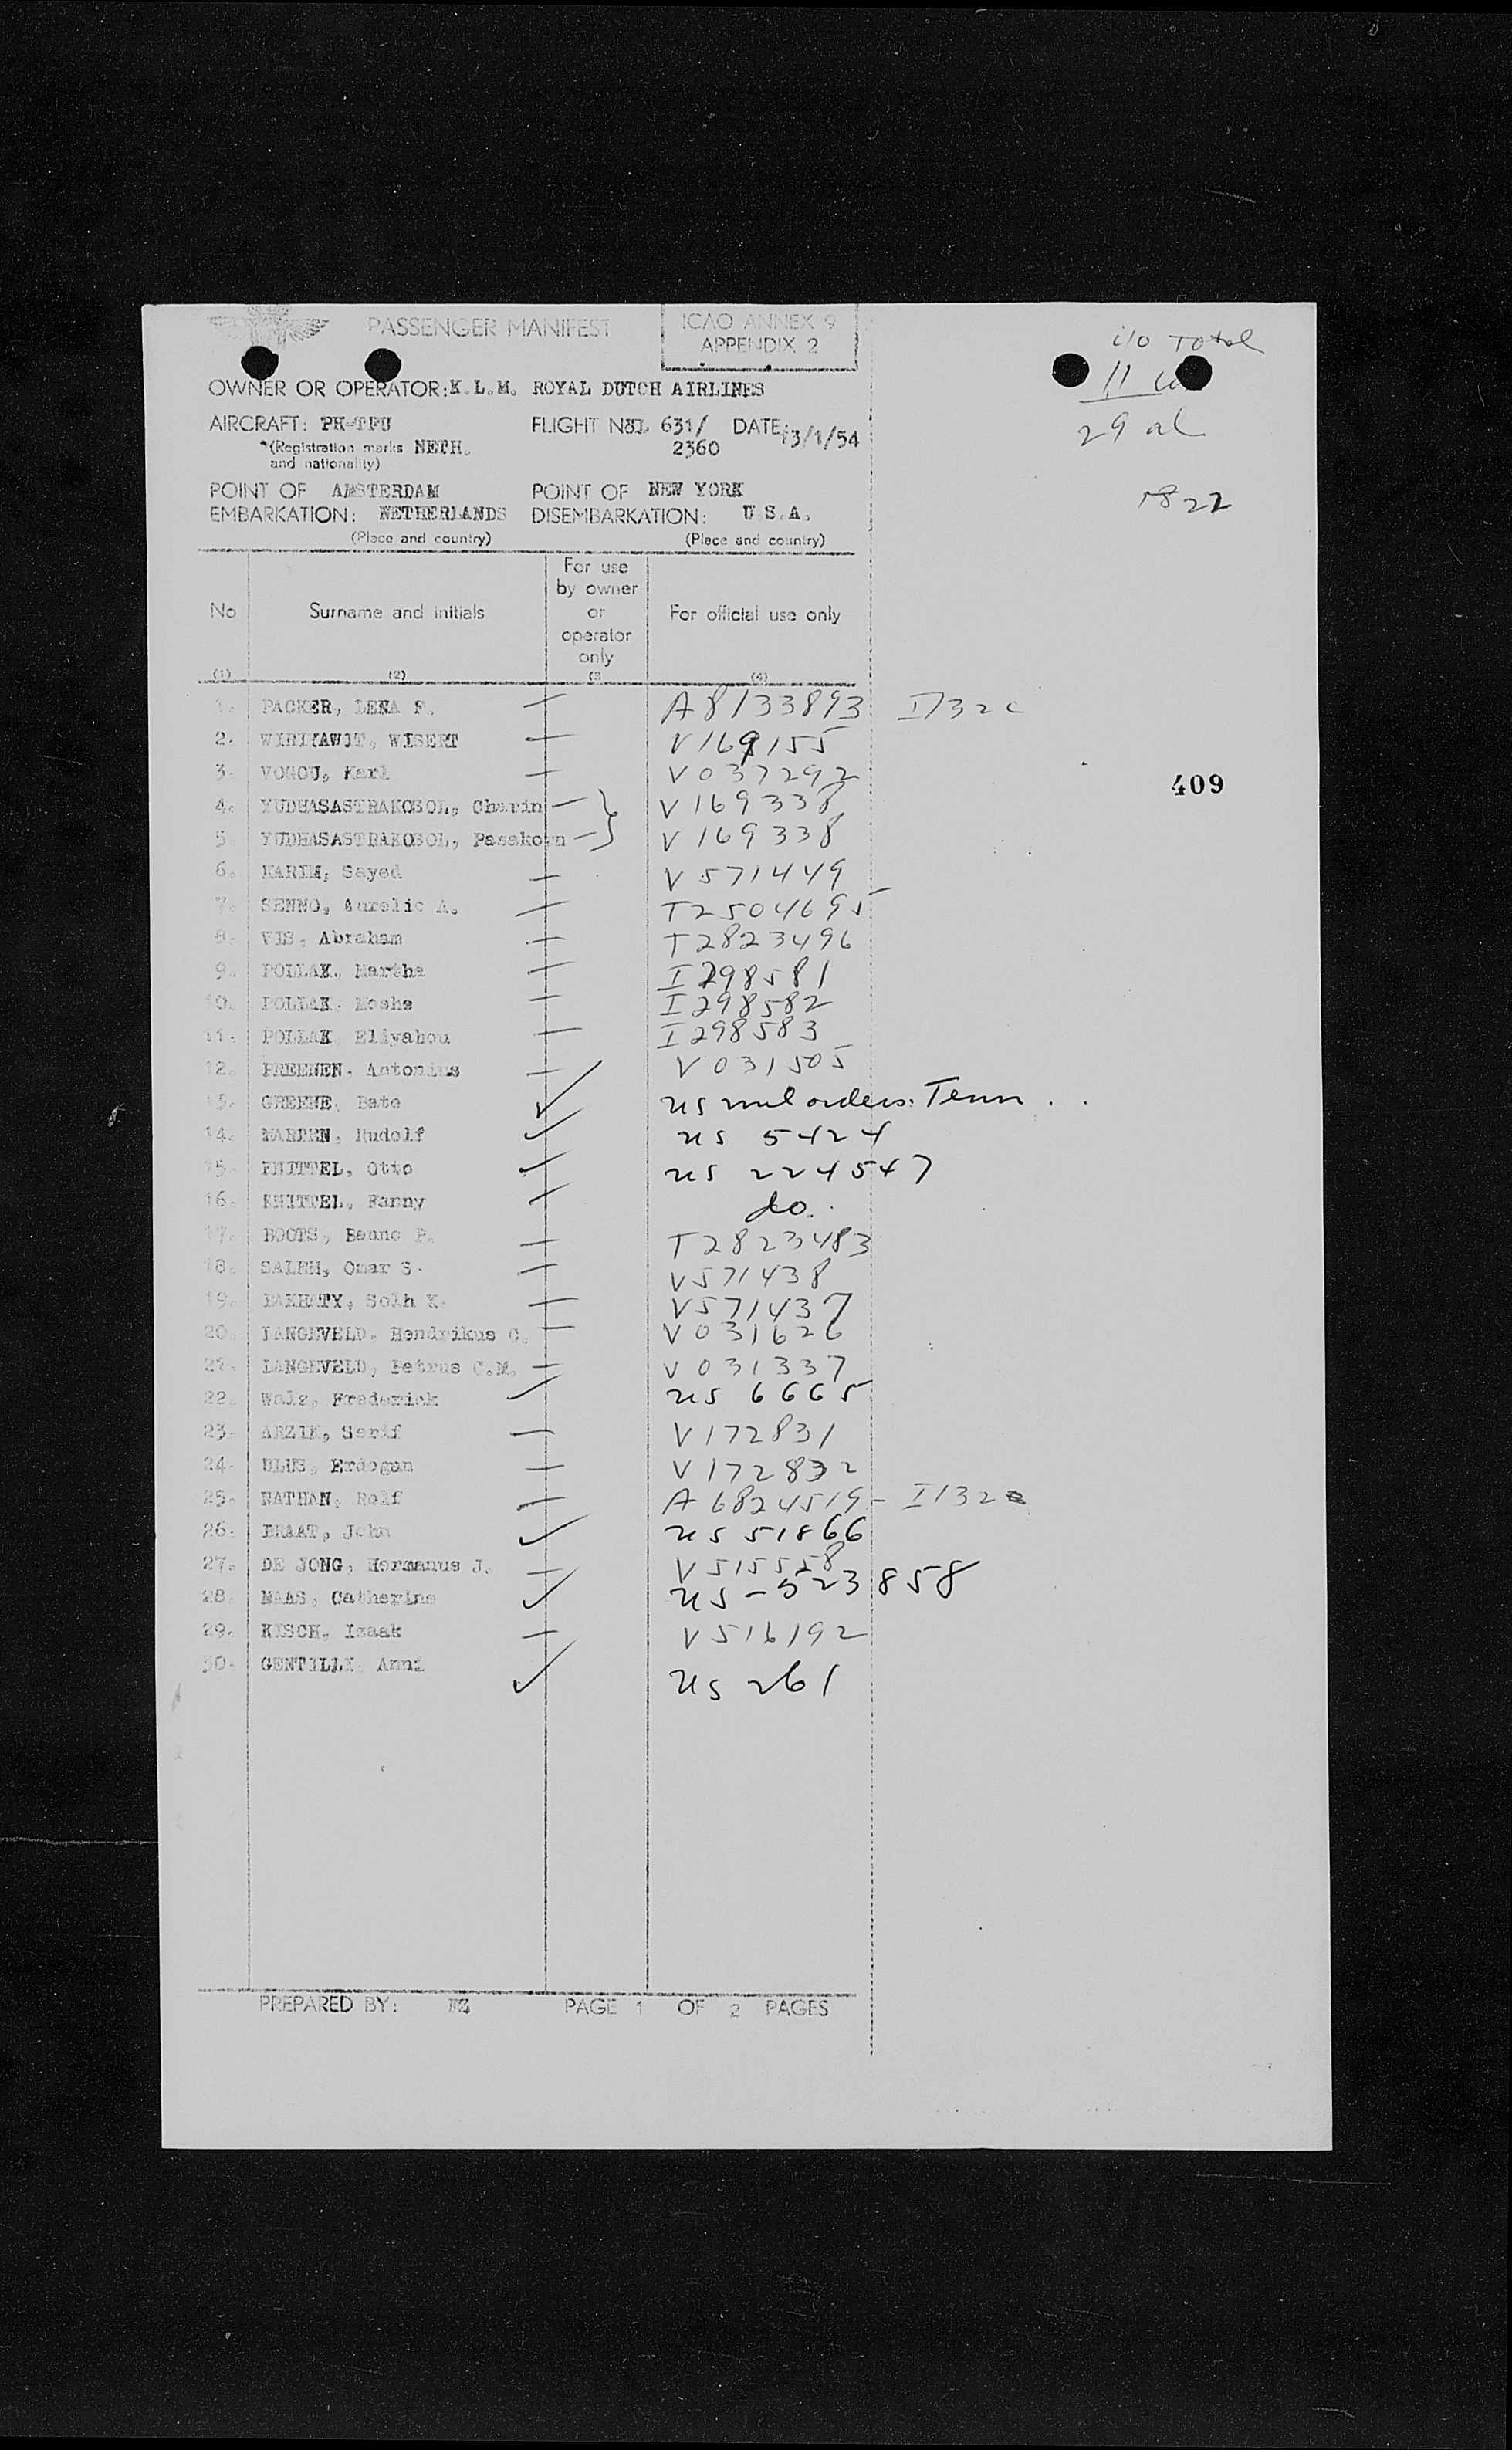 PASSENGER MANIFEST
ICAO ANNEX 9
APPENDIX 2
i/o Total
11
29 al
OWNER OR OPERATOR: K.L.M. ROYAL DUTCH AIRLINES
AIRCRAFT: PH-TFU FLIGHT 631/ DATE: 13/1/54
*(Registration marks NETH. 2360
and nationality)
POINT OF AMSTERDAM POINT OF NEW YORK
EMBARKATION: NETHERLANDS DISEMBARKATION: U.S.A.
(Place and country) (Place and country)
1822
No Surname and initials For use by owner or operator only For official use only
(1) (2) (3 (4)
1. PACKER, LENA F. A8133893 I132c
2. WIRIYAWIT, WISERT V169155
3. VOGOU, Karl V037292
409
4. YUDHASASTRAKOSOL, Charin V169338
5 YUDHASASTRAKOSOL, Pasakorn V169338
6. KARIM, Sayed V571449
7. SENNO, Aurelio A. T2504695
8. VIS, Abraham T2823496
9. POLLAK. Martha I298581
10. POLLAK. Moshe I298582
11. POLLAK Eliyahou I298583
12. PREENEN. Antonius V031505
13. GREENE. Bate US mil orders. Tenn
14. MARTEN, Rudolf US 5424
15. KNITTEL, Otto US 224547
16. KNITTEL, Fanny do.
17. BOOTS, Benno P. T2823483
18. SALEH, Omar S. V571438
19. BAKHATY, Solh K. V571437
20. LANGEVELD. Hendrikus C. V031626
21. LANGEVELD, Petrus C.M. V031337
22. Walz, Frederick US 6665
23. ARZIK, Serif V172831
24. ULUS, Erdogan V172832
25. NATHAN, Rolf A6824519 - I132
26. BRAAT, John US 51866
27. DE JONG, Hermanus J. V515558
28. MAAS, Catherine US-523858
29. KISCH, Izaak V516192
30. GENTILLI Anni US 261
PREPARED BY: PAGE 1 OF 2 PAGES